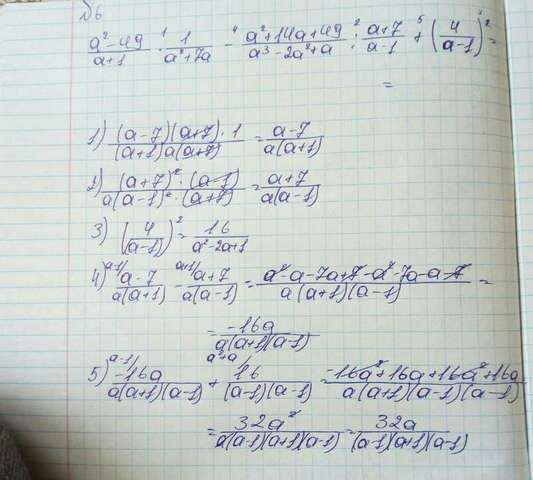 №6
(a²-49)/(a+1) ·¹ 1/(a²+7a) -⁴ (a²+14a+49)/(a³-2a²+a) :² (a+7)/(a-1) +⁵ (4/(a-1))² ³ =
=
1) ((a-7)(a+7)·1)/((a+1)a(a+7)) = (a-7)/(a(a+1))
2) ((a+7)²·(a-1))/(a(a-1)²·(a+7)) = (a+7)/(a(a-1))
3) (4/(a-1))² = 16/(a²-2a+1)
4) ᵃ⁻¹⁄ (a-7)/(a(a+1)) - ᵃ⁺¹⁄ (a+7)/(a(a-1)) = (a²-a-7a+7-a²-7a-a-7)/(a(a+1)(a-1)) =
= (-16a)/(a(a+1)(a-1))
5) ᵃ⁻¹⁄ (-16a)/(a(a+1)(a-1)) + ᵃ²⁺ᵃ⁄ 16/((a-1)(a-1)) = (-16a²+16a+16a²+16a)/(a(a+1)(a-1)(a-1))
= (32a²)/(a(a-1)(a+1)(a-1)) = (32a)/((a-1)(a+1)(a-1))